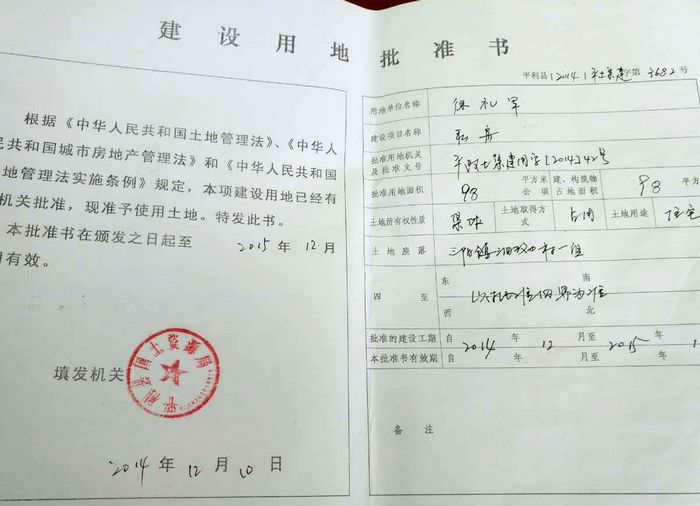 建设用地批准书
根据《中华人民共和国土地管理法》、《中华人
民共和国城市房地产管理法》和《中华人民共和国
地管理法实施条例》规定，本项建设用地已经有
机关批准，现准予使用土地。特发此书。
本批准书在颁发之日起至 2015 年 12 月
有效。
填发机关
平利县国土资源局
2014 年 12 月 10 日
平利县[2014]平土集建字第3682号
用地单位名称 徐礼军
建设项目名称
批准用地机关及批准文号 平政土集建用字[2014]42号
批准用地面积 98 平方米 公项 建、构筑物占地面积 98 平方
土地所有权性质 集体 土地取得方式 占用 土地用途 住宅
土地座落 三阳镇 村一组
四至 东 南 西 北
以批准四界为准
批准的建设工期 自 2014 年 12 月至 2015 年 1
本批准书有效期 自 年 月至 年
备注